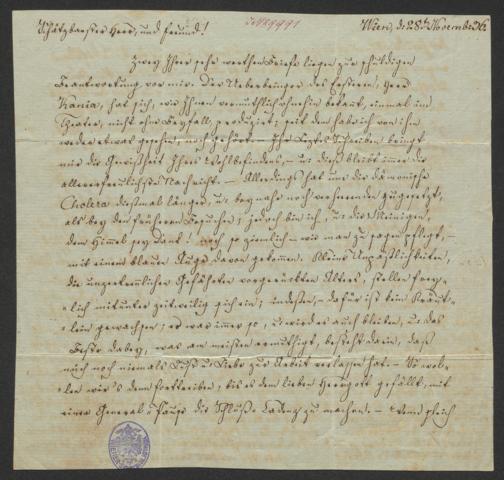 Schätzbarster Herr, und Freund! Wien, d. 28ten November 36.
Zwey Ihrer sehr werthen Briefe liegen zur schuldigen
Beantwortung vor mir. Der Ueberbringer des Ersteren, Herr
Kania, hat sich, wie Ihnen vermuthlich ohnehin bekant, einmal im
Theater, nicht ohne Beyfall, produzirt; seit dem hab ich von ihm
weder etwas gesehen, noch gehört. – Ihr Leztes Schreiben bringt
mir die Gewißheit Ihres Wohlbefindens, – u: dieß bleibt imer die
allererfreulichste Nachricht. – Allerdings hat uns die dämonische
Cholera dießmal länger, u: beynahe noch verheerender zugesetzt,
als bey den früheren Besuchen; jedoch bin ich, u: die Meinigen,
dem Himmel sey Dank! noch so ziemlich – wie man zu sagen pflegt, –
mit einem blauen Auge davon gekomen. Kleine Unpäßlichkeiten,
die unzertrenlichen Gefährten vorgerückten Alters, stellen frey-
lich mitunter zeitweilig sich ein; indessen, – dafür ist kein Kräut-
lein gewachsen; es war imer so, u: wird es auch bleiben, u: das
Beste dabey, was am meisten ermuthigt, besteht darin, daß
mich noch niemals Lust u: Liebe zur Arbeit verlassen hat. – So wol-
len wir's denn forttreiben, bis es dem lieben Herrgott gefällt, mit
einer General-Pause die Schluß-Cadenz zu machen. – Wenn gleich